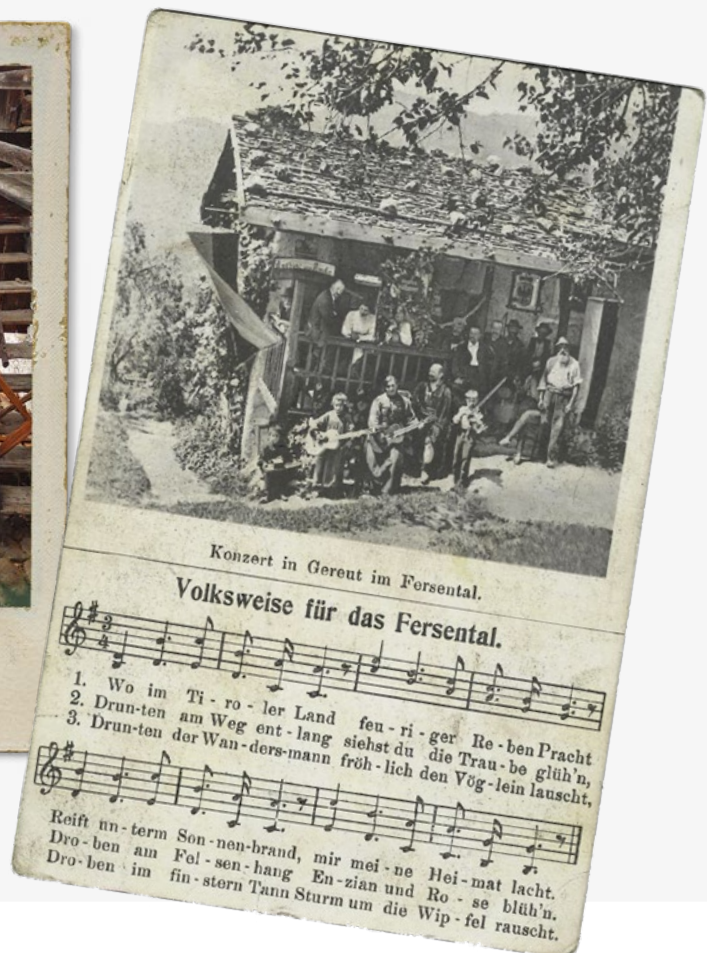 Konzert in Gereut im Fersental.
Volksweise für das Fersental.
3
4
1. Wo im Ti - ro - ler Land feu - ri - ger Re - ben Pracht
2. Drun-ten am Weg ent - lang siehst du die Trau - be glüh'n,
3. Drun-ten der Wan - ders-mann fröh - lich den Vög - lein lauscht,
Reift un - term Son - nen-brand, mir mei - ne Hei - mat lacht.
Dro - ben am Fel - sen - hang En - zian und Ro - se blüh'n.
Dro - ben im fin - stern Tann Sturm um die Wip - fel rauscht.